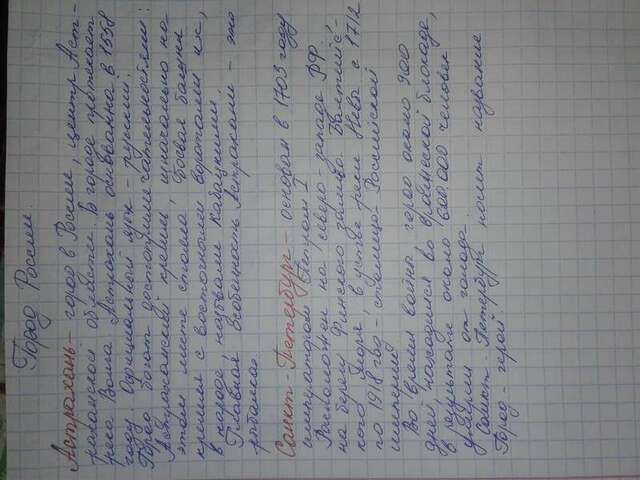 Город России.
Астрахань – город в России, центр Аст-
раханской области. В городе протекает
река Волга. Астрахань основанна в 1558
году. Официальный язык – русский.
Город богат достопримечательностями:
Астраханский кремль, изначально на
этом месте стояла боевая башня
кремля с восточными воротами их,
в народе, назвали Кабацкими.
Главная особеность Астрахани – это
рыбалка.
Санкт-Петербург – основан в 1703 году
императором Петром I
Расположен на северо-западе РФ,
на берегу Финского залива Балтийс-
кого моря, в устье реки Невы с 1712
по 1918 год – столица Российской
империи
Во время войны, город около 900
дней, находился во вражеской блокаде,
в результате около 600 000 человек
умерли от голода.
Санкт-Петербург носит название
Город-герой.